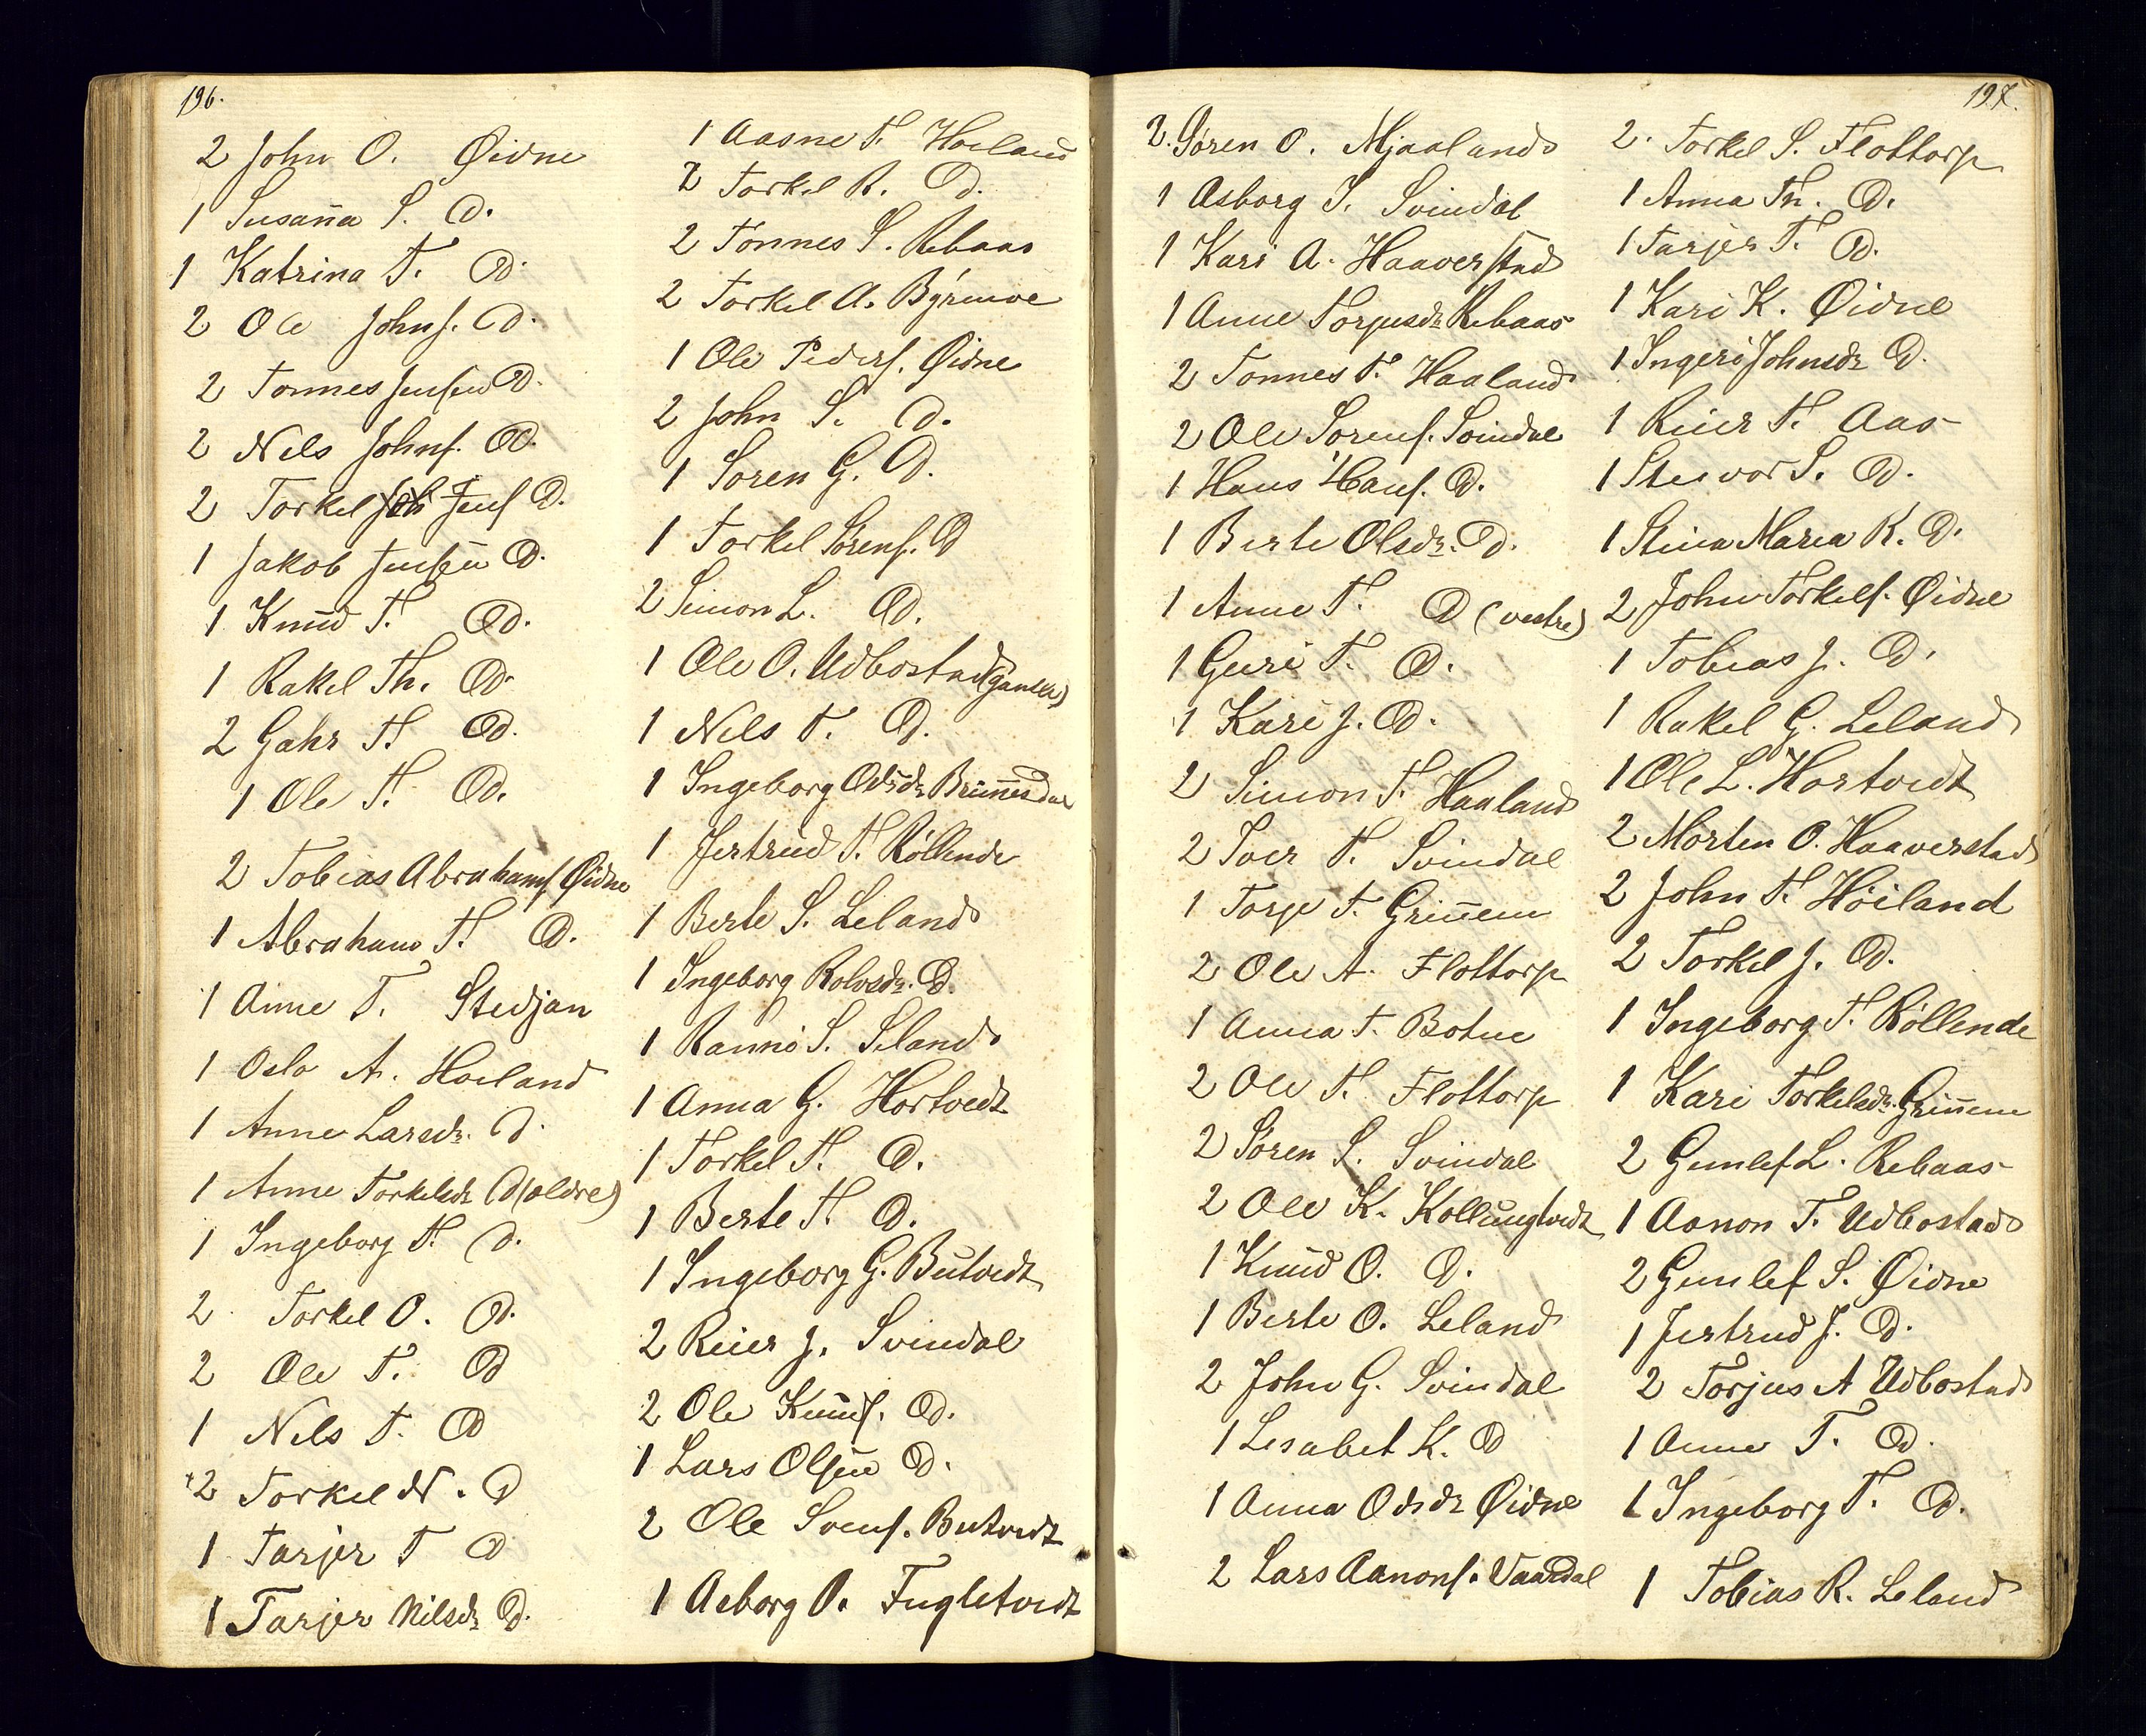 196.
2 John O. Øidne
1 Susan̄a S. D.
1 Katrina T. D.
2 Ole Johns. D.
2 Tønnes Jensen D.
2 Nels Johns. D.
2 Torkel Jens D.
1 Jakob Jensen D.
1 Knud T. D.
1 Rakel Th. D.
2 Gahr T. D.
1 Ole T. D.
2 Tobias Abrahams Øidne
1 Abraham T. D.
1 Anne T. Stedjan
1 Oslo A. Hoiland
1 Anne Larsdr. D.
1 Anne Torkelsdr D (ældre)
1 Ingeborg T. D.
2 Torkel O. D.
2 Ole T. D
1 Nels T. D
2 Torkel N. D
1 Tarjer T D
1 Tarjer Nilsdr D.
1 Aasne T. Hoiland
2 Torkel R. D.
2 Tønnes S. Rebaas
2 Torkel A. Byremoe
1 Ole Peders. Øidne
2 John S. D.
1 Søren G. D.
1 Torkel Sørens. D
2 Simon L. D.
1 Ole O. Udbostad
1 Nels T. D.
1 Ingeborg Odsdr. Brun̄esdal
1 Jertrud T. Røllende
1 Berte S. Leland
1 Ingeborg Rolvsdr. D.
1 Rannei S. Leland
1 Anna G. Hortvedt
1 Torkel T. D.
1 Berte T. D.
1 Ingeborg G. Butvedt
2 Reier J. Svindal
2 Ole Knuds. D.
1 Lars Olsen D.
2 Ole Svens. Butvedt
1 Asborg O. Fugletvedt
197.
2. Søren O. Mjaaland
1 Asborg S. Svindal
1 Kari A. Haaverstad
1 Anne Torjusdr. Rebaas
2 Tønnes T. Haaland
2 Ole Sørens. Svindal
1 Hans Hans. D.
1 Berte Olsdr. D.
1 Anne T. D (vestre)
1 Guri T. D.
1 Kari J. D.
2 Simon T. Haaland
2 Iver T. Svindal
1 Torje T. Grin̄em
2 Ole A. Flottorp
1 Anna T. Botne
2 Ole T. Flottorp
2 Søren S. Svindal
2 Ole K. Kollungtvedt
1 Knud O. D.
1 Berte O. Leland
2 John G. Svindal
1 Lisabet K. D
1 Anna Odsdr Øidne
2 Lars Aanons. Vaardal
2. Torkel S. Flottorp
1 Anna Th. D.
1 Tarjer T. D.
1 Kari K. Øidne
1 Ingeri Johnsdr D.
1 Reier T. Aas
1 Steivor S. D.
1 Stina Maria R. D.
2 John Torkels. Øidne
1 Tobias J. D.
1 Rakel G. Leland
1 Ole L. Hortvedt
2 Morten O. Haaverstad
2 John T. Høiland
2 Torkel J. D.
1 Ingeborg T. Røllende
1 Kari Torkelsdr. Grin̄em
2 Gunlef L. Rebaas
1 Aanon T. Udbostad
2 Gunlef S. Øidne
1 Jertrud J. D.
2 Torjus A Udbostad
1 Anne T. D.
1 Ingeborg T. D.
1 Tobias R. Leland